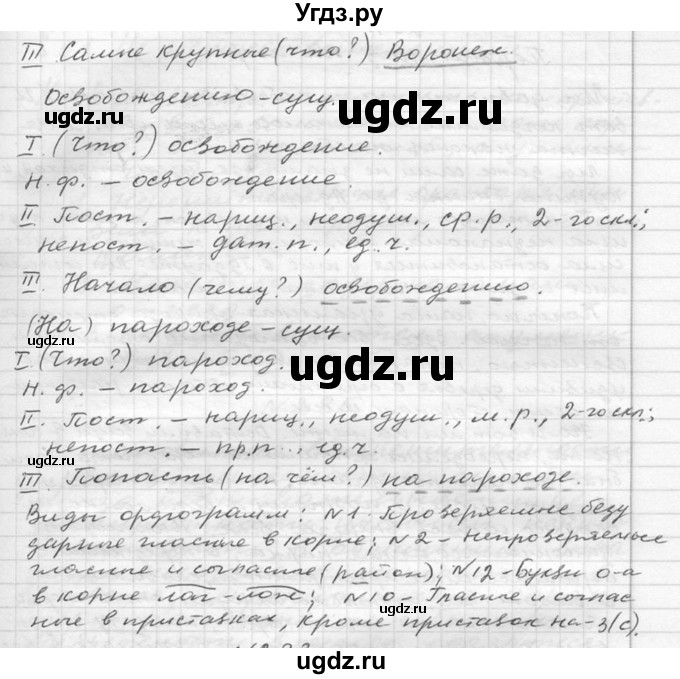 Угдз.ру
III Самые крупные (что?) Воронеж.
Освобождению – сущ.
I (Что?) освобождение.
Н. ф. – освобождение.
II Пост. – нариц., неодуш., ср. р., 2-го скл.;
непост. – дат. п., ед. ч.
III. Начало (чему?) освобождению.
(На) пароходе – сущ.
I (Что?) пароход.
Н. ф. – пароход.
II. Пост. – нариц., неодуш., м. р., 2-го скл.;
непост. – пр. п., ед. ч.
III Попасть (на чём?) на пароходе.
Виды орфограмм: №1. Проверяемые безу
дарные гласные в корне; №2 – Непроверяемые
гласные и согласные (район); №12 – Буквы о-а
в корне лаг-лож; №10 – Гласные и соглас
ные в приставках, кроме приставок на -з(с).
ugdz.ru
ugdz.ru
ugdz.ru
ugdz.ru
ugdz.ru
ugdz.ru
ugdz.ru
ugdz.ru
ugdz.ru
ugdz.ru
ugdz.ru